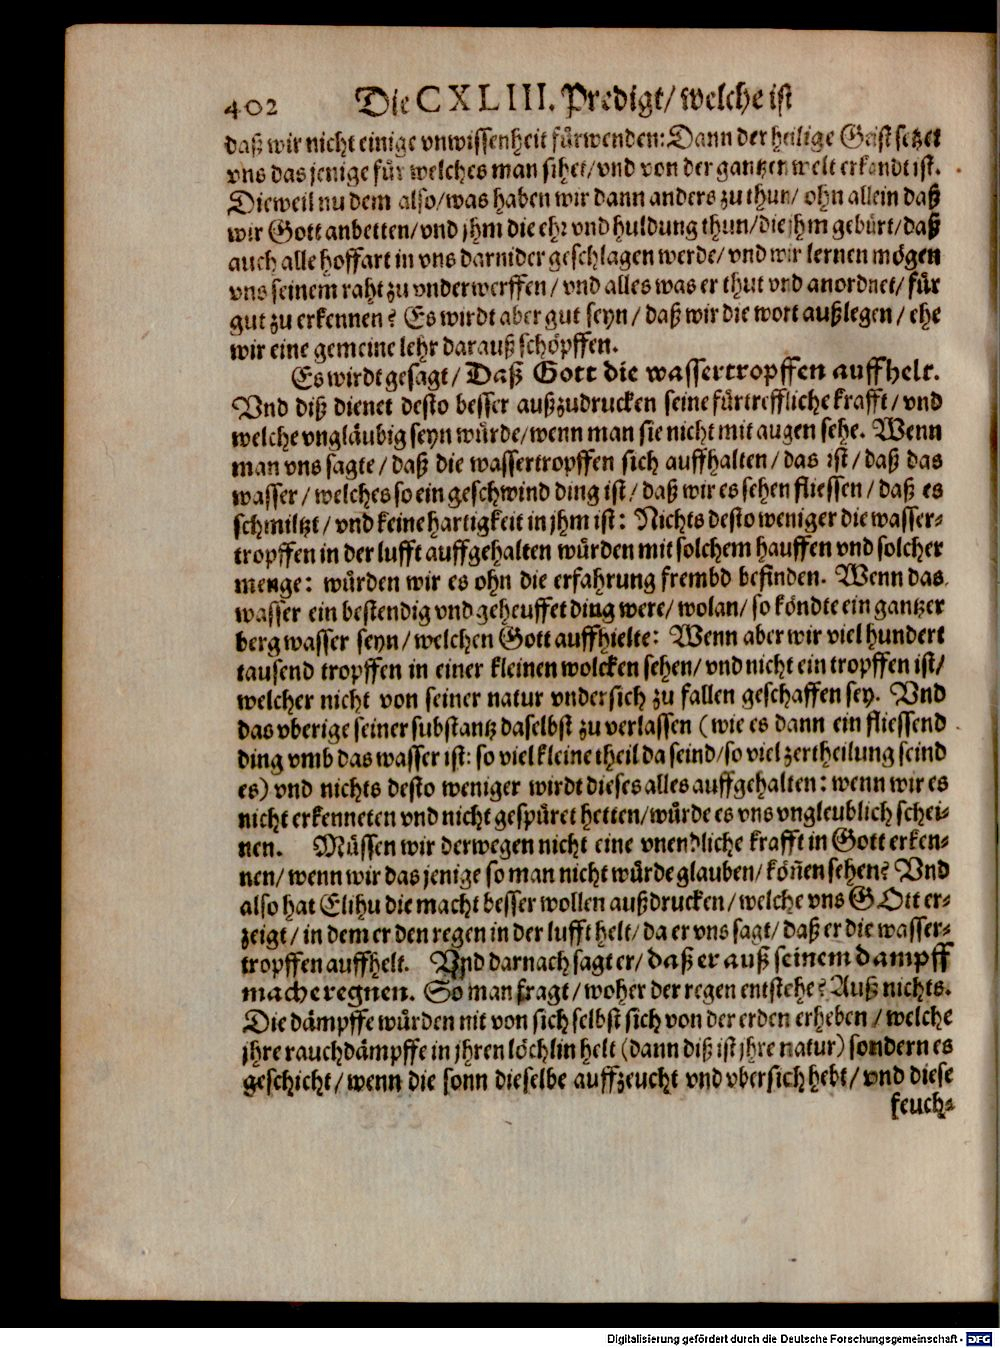 402 Die CXLIII. Predigt/ welche ist
daß wir nicht einige vnwissenheit fürwenden: Dann der heilige Geist setzet
vns das jenige für welches man sihet/ vnd von der gantzen welt erkandt ist.
Dieweil nu dem also/ was haben wir dann anders zu thun/ ohn allein daß
wir Gott anbetten/ vnd jhm die ehr vnd huldung thun/ die jhm gebürt/ daß
auch alle hoffart in vns darnider geschlagen werde/ vnd wir lernen mögen
vns seinem raht zu vnderwerffen/ vnd alles was er thut vnd anordnet/ für
gut zu erkennen? Es wirdt aber gut seyn/ daß wir die wort außlegen/ ehe
wir eine gemeine lehr darauß schöpffen.
Es wirdt gesagt/ Daß Gott die wassertropffen auffhelt.
Vnd diß dienet desto besser außzudrucken seine fürtreffliche krafft/ vnd
welche vngläubig seyn würde/ wenn man sie nicht mit augen sehe. Wenn
man vns sagte/ daß die wassertropffen sich auffhalten/ das ist/ daß das
wasser/ welches so ein geschwind ding ist/ daß wir es sehen fliessen/ daß es
schmiltzt/ vnd keine hartigkeit in jhm ist: Nichts desto weniger die wasser-
tropffen in der lufft auffgehalten würden mit solchem hauffen vnd solcher
menge: würden wir es ohn die erfahrung frembd befinden. Wenn das
wasser ein bestendig vnd geheuffet ding were/ wolan/ so köndte ein gantzer
berg wasser seyn/ welchen Gott auffhielte: Wenn aber wir viel hundert
tausend tropffen in einer kleinen wolcken sehen/ vnd nicht ein tropffen ist/
welcher nicht von seiner natur vndersich zu fallen geschaffen sey. Vnd
das vberige seiner substantz daselbst zu verlassen (wie es dann ein fliessend
ding vmb das wasser ist: so viel kleine theil da seind/ so viel zertheilung seind
es) vnd nichts desto weniger wirdt dieses alles auffgehalten: wenn wir es
nicht erkenneten vnd nicht gespüret hetten/ würde es vns vngleublich schei-
nen. Müssen wir derwegen nicht eine vnendliche krafft in Gott erken-
nen/ wenn wir das jenige so man nicht würde glauben/ köñen sehen? Vnd
also hat Elihu die macht besser wollen außdrucken/ welche vns GOtt er-
zeigt/ in dem er den regen in der lufft helt/ da er vns sagt/ daß er die wasser-
tropffen auffhelt. Vnd darnach sagt er/ daß er auß seinem dampff
mache regnen. So man fragt/ woher der regen entstehe? Auß nichts.
Die dämpffe würden nit von sich selbst sich von der erden erheben/ welche
jhre rauchdämpffe in jhren löchlin helt (dann diß ist jhre natur) sondern es
geschicht/ wenn die sonn dieselbe auffzeucht vnd vbersich hebt/ vnd diese
feuch-
Digitalisierung gefördert durch die Deutsche Forschungsgemeinschaft - DFG